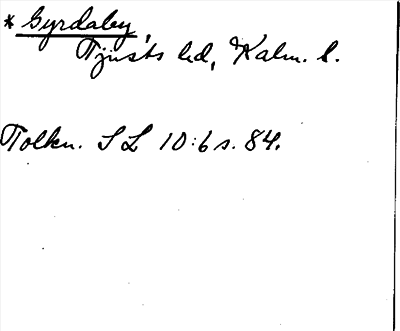 * Gyrdaby,
Tjusts hd, Kalm. l.
Tolkn. SL 10:6 s. 84.